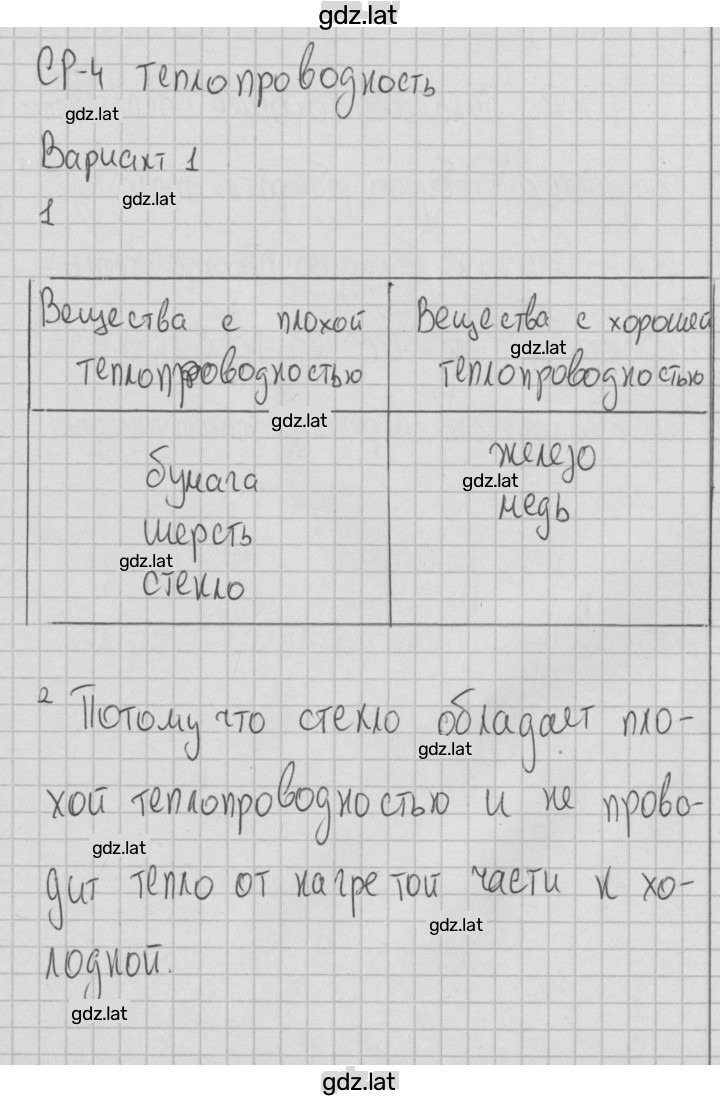 gdz.lat
СР-4 теплопроводность
gdz.lat
Вариант 1
gdz.lat
1
Вещества с плохой теплопроводностью
Вещества с хорошей теплопроводностью
gdz.lat
gdz.lat
бумага
шерсть
стекло
gdz.lat
железо
медь
gdz.lat
2 Потому что стекло обладает пло-
gdz.lat
хой теплопроводностью и не прово-
gdz.lat
дит тепло от нагретой части к хо-
gdz.lat
лодной.
gdz.lat
gdz.lat